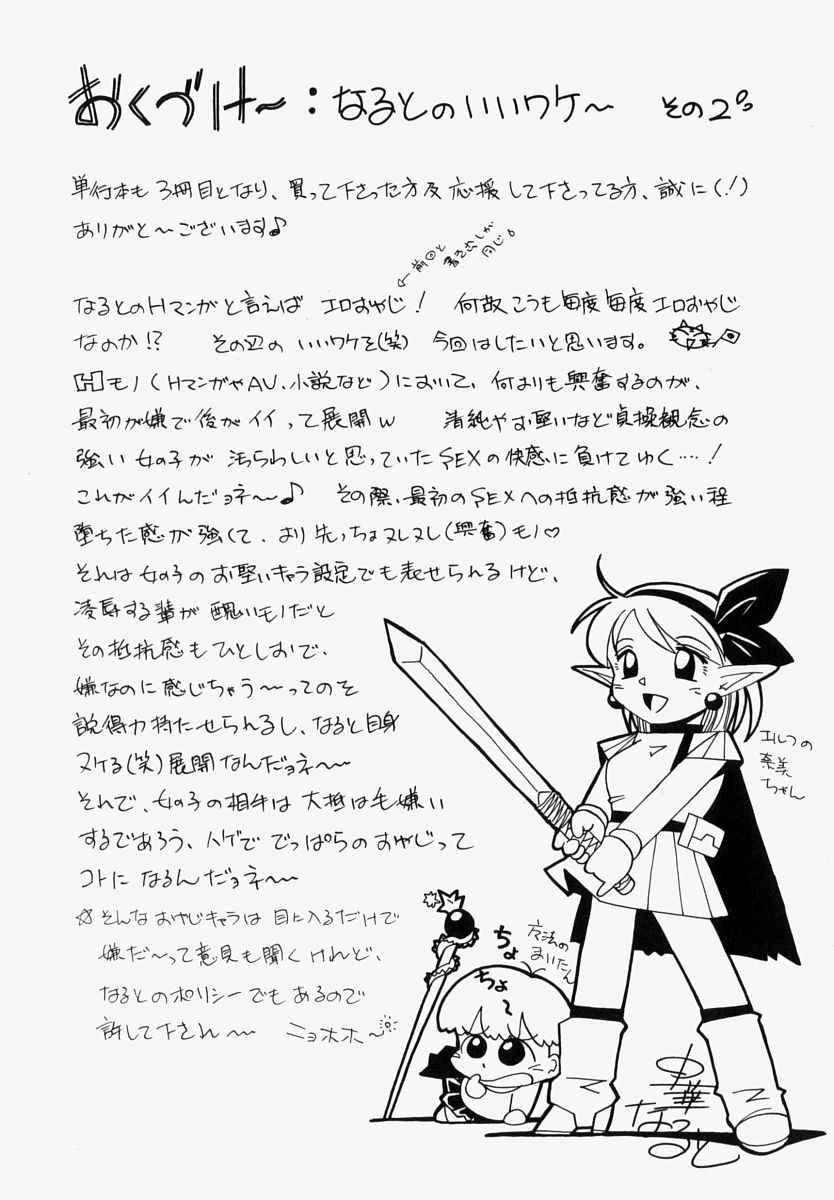 おくづけ〜：なるとのいいワケ〜 その2。
単行本も3冊目となり、買って下さった方及応援して下さってる方、誠に(!)
ありがと〜ございます♪
←前回と
書き出しが
同じ。
なるとのHマンガと言えば エロおやじ! 何故こうも毎度毎度エロおやじ
なのか!? その辺の いいワケを(笑) 今回はしたいと思います。
Hモノ(HマンガやAV、小説など)において、何よりも興奮するのが、
最初が嫌で後がイイって展開w 清純やお堅いなど貞操観念の
強い女の子が 汚らわしいと思っていたSEXの快感に負けてゆく…!
これがイイんだョネ〜♪ その際、最初のSEXへの抵抗感が強い程
堕ちた感が強くて、より先っちょヌレヌレ(興奮)モノ♡
それは女の子のお堅いキャラ設定でも表せられるけど、
凌辱する輩が醜いモノだと
その抵抗感もひとしおで、
嫌なのに感じちゃう〜ってのを
説得力持たせられるし、なると自身
ヌケる(笑)展開なんだョネ〜
それで、女の子の相手は大抵は毛嫌い
するであろう、ハゲででっぱらのおやじって
コトになるんだョネ〜
☆そんなおやじキャラは目に入るだけで
嫌だ〜って意見も聞くけれど、
なるとのポリシーでもあるので
許して下され〜 ニョホホ〜
エルフの
奈美
ちゃん
ちょ
ちょ〜
魔法の
まいたん
中華
なると